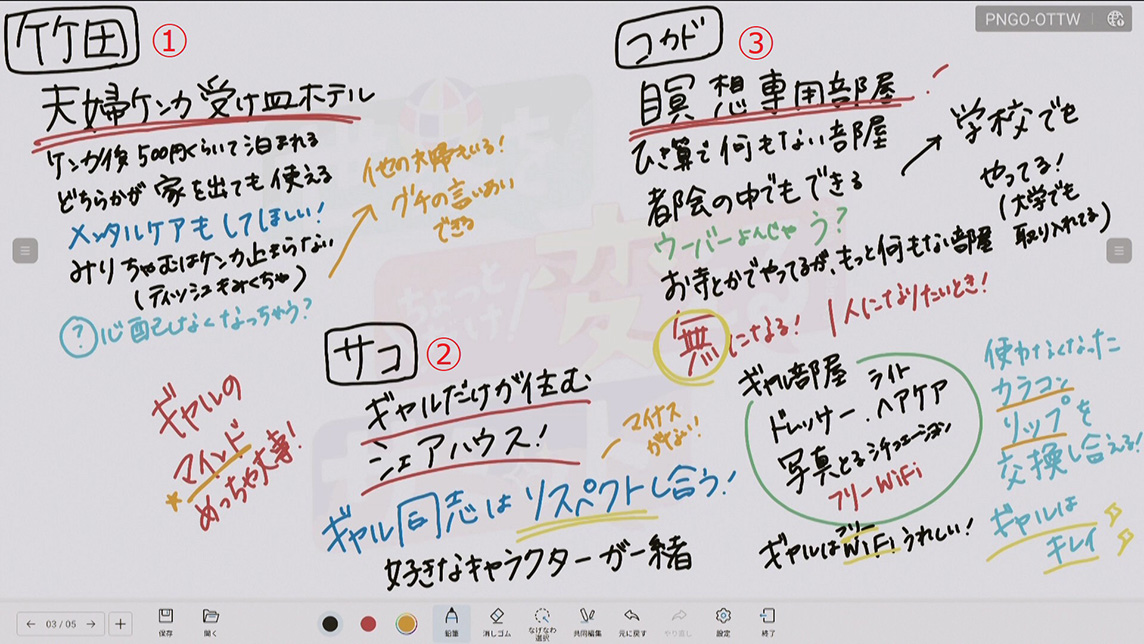 PNGO-OTTW
竹田 ①
夫婦ケンカ受け皿ホテル
ケンカ後500円くらいで泊まれる
どちらかが家を出ても使える
メンタルケアもしてほしい!
みりちゃむはケンカ止まらない
(ティッシュもみくちゃ)
? 心配しなくなっちゃう?
他の夫婦もいる!
グチの言いあい
できる
ギャルの
マインド
めっちゃ大事!
サコ ②
ギャルだけが住む
シェアハウス!
マイナス
がない!
ギャル同志はリスペクトし合う!
好きなキャラクターが一緒
コカド ③
瞑想専用部屋!
ひき算で何もない部屋
都会の中でもできる
ウーバーよんじゃう?
お寺とかでやってるが、もっと何もない部屋
無になる! 1人になりたいとき!
学校でも
やってる!
(大学でも
取り入れてる)
ギャル部屋 ライト
ドレッサー.ヘアケア
写真とるシチュエーション
フリーWiFi
ギャルはフリーWiFiうれしい!
使わなくなった
カラコン
リップを
交換し合える!
ギャルは
キレイ
ちょっと
だけ!
変
03 / 05
保存
開く
鉛筆
消しゴム
なげなわ
選択
共同編集
元に戻す
やり直し
設定
終了